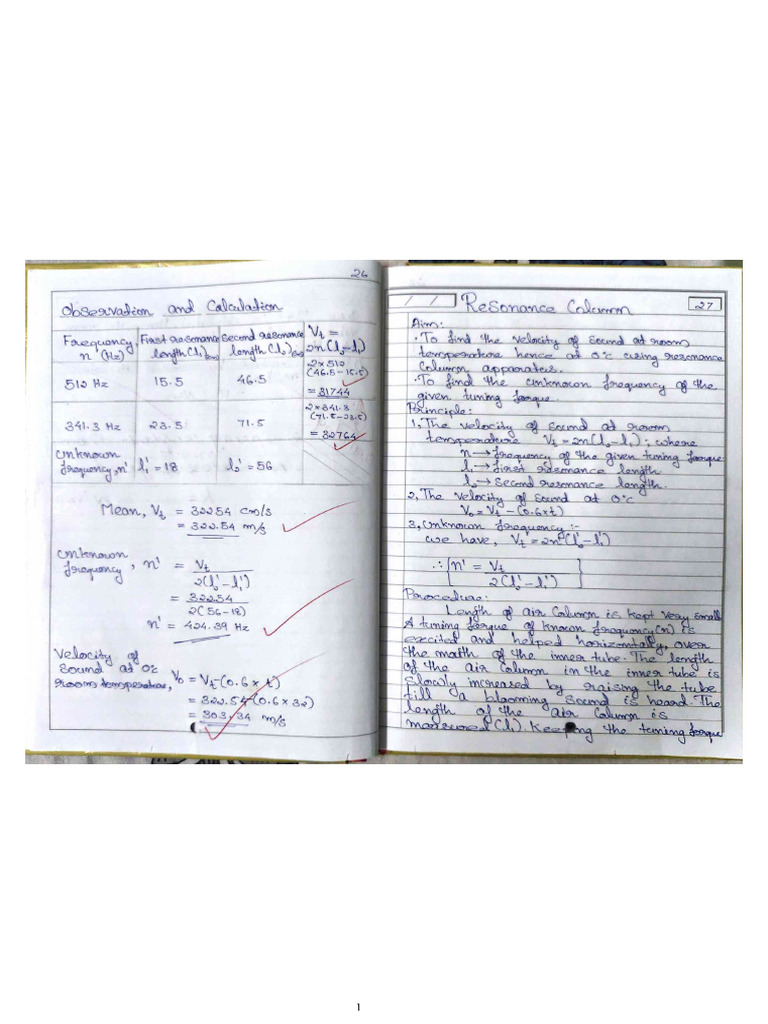 26
Observation and Calculation
Frequency n (Hz) First resonance length (l₁)(cm) Second resonance length (l₂)(cm) Vt = 2n(l₂-l₁)
512 Hz 15.5 46.5 2×512 (46.5-15.5) = 31744
341.3 Hz 23.5 71.5 2×341.3 (71.5-23.5) = 32764
Unknown frequency, n' l₁' = 18 l₂' = 56
Mean, Vt = 32254 cm/s
= 322.54 m/s
Unknown frequency, n' = Vt / 2(l₂'-l₁')
= 322.54 / 2(56-18)
n' = 424.39 Hz
Velocity of
sound at 0c
room temperature, V₀ = Vt (0.6×t)
= 322.54 (0.6×32)
= 303.34 m/s
Resonance Column 27
Aim:
· To find the velocity of sound at room
temperature hence at 0°c using resonance
Column apparatus.
· To find the unknown frequency of the
given tuning forque.
Principle:
1, The velocity of sound at room
temperature Vt = 2n(l₂-l₁); where
n → frequency of the given tuning forque
l₁ → First resonance length
l₂ → Second resonance length.
2, The velocity of sound at 0°c
V₀ = Vt - (0.6×t)
3, Unknown frequency :-
we have, Vt = 2n'(l₂'-l₁')
∴ [n' = Vt / 2(l₂'-l₁')]
Procedure:
Length of air column is kept very small
A tuning forque of known frequency (n) is
excited and helped horizontally, over
the mouth of the inner tube. The length
of the air column in the inner tube is
slowly increased by raising the tube
till a blooming sound is heard. The
length of the air column is
measured (l₁). Keeping the tuning forque
1